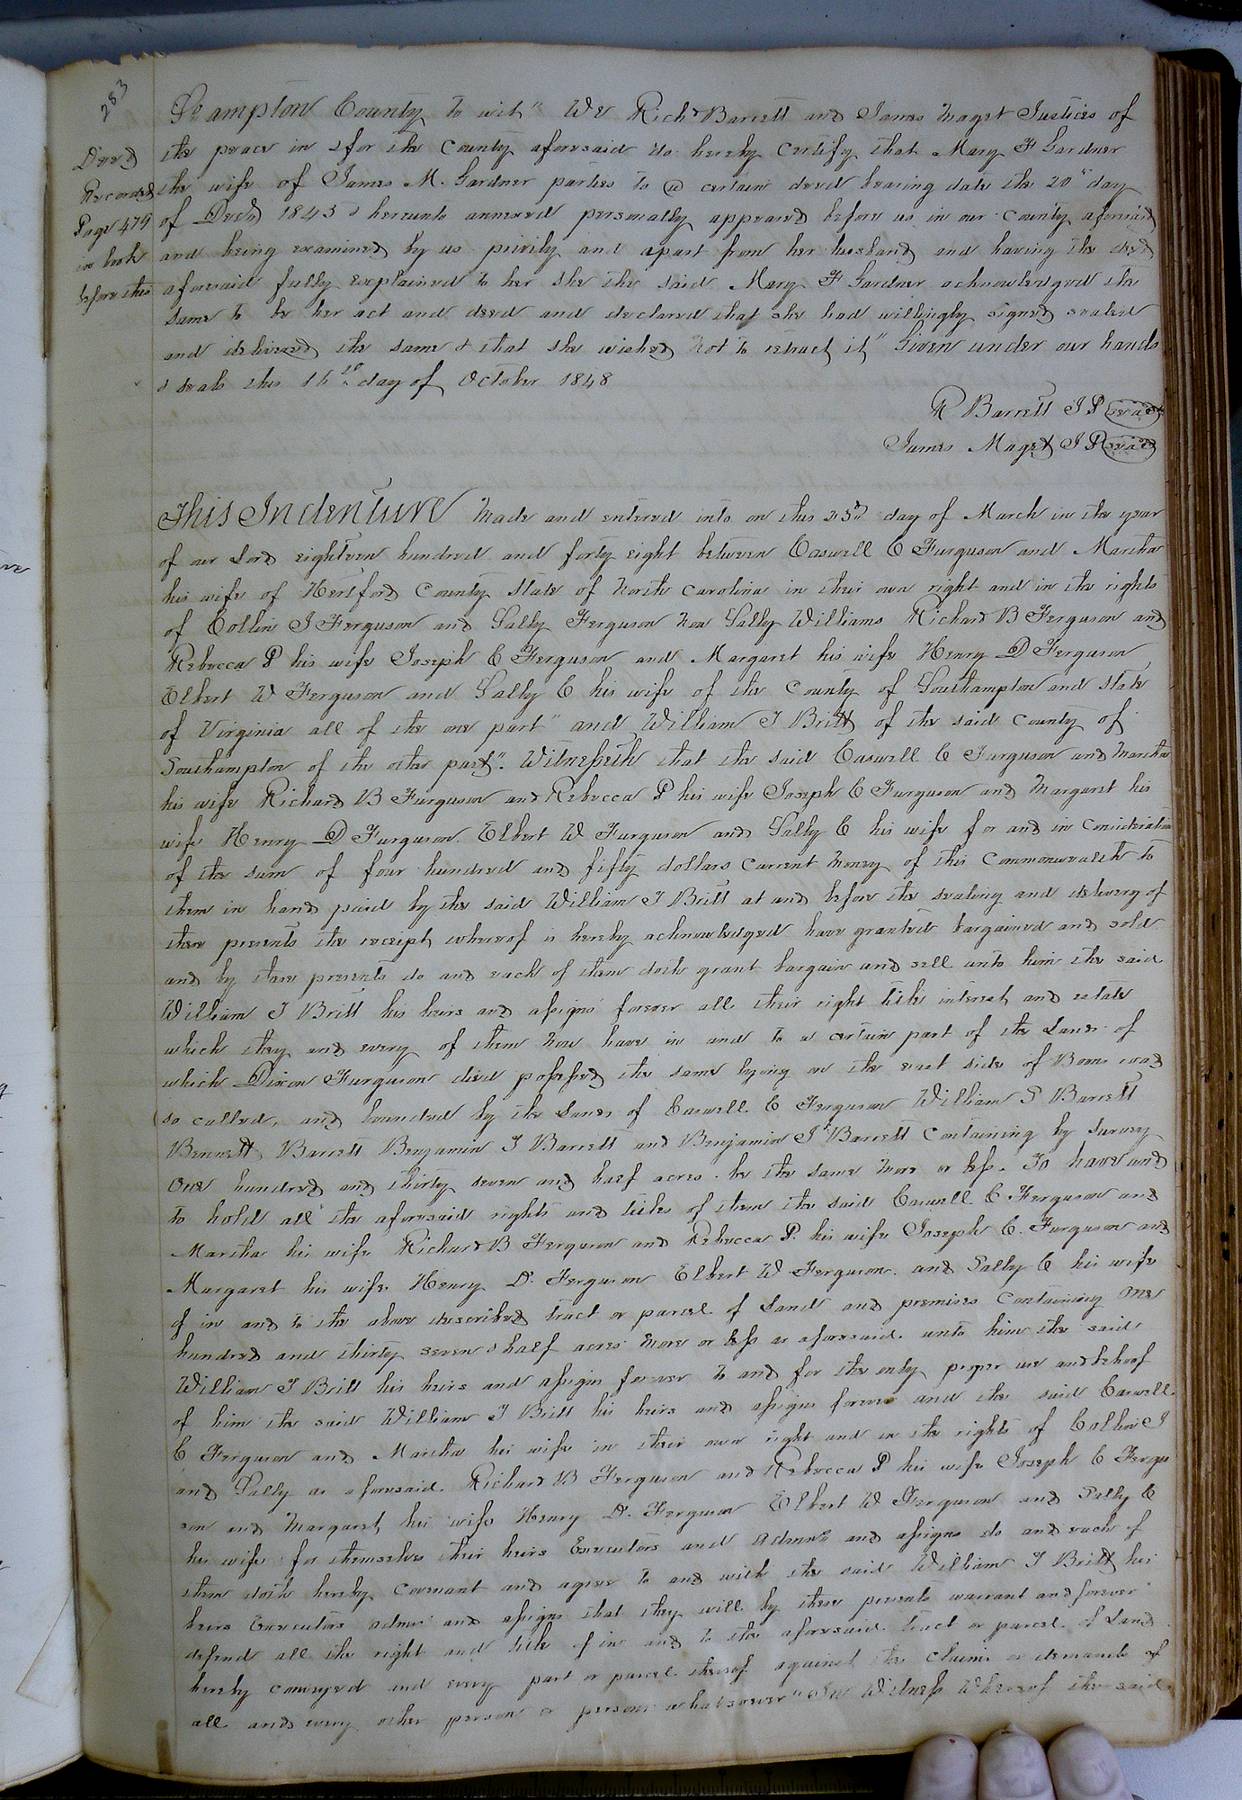 283
Deed
Recorded
Page 479
in book
before this
So ampton County to wit" We Richd Barrett and James Maget Justices of
the peace in & for the County aforesaid do hereby Certify that Mary F Gardner
the wife of James M. Gardner parties to a certain deed bearing date the 20th day
of Decr 1845 & hereunto annexed personally appeared before us in our County aforesaid
and being examined by us privily and apart from her husband and having the deed
aforesaid fully explained to her she the said Mary F Gardner acknowledged the
same to be her act and deed and declared that she had willingly signed sealed
and delivered the same & that she wished not to retract it" Given under our hands
& seals this 16th day of October 1848
R Barrett J P seal
James Maget J P seal
This Indenture Made and entered into on this 25th day of March in the year
of our Lord eighteen hundred and forty eight between Caswell C Furguson and Martha
his wife of Hertford County State of North Carolina in their own right and in the rights
of Collin J Ferguson and Sally Ferguson now Sally Williams Richard B Ferguson and
Rebecca P his wife Joseph C Ferguson and Margaret his wife Henry D Ferguson
Elbert W Ferguson and Sally C his wife of the County of Southampton and State
of Virginia all of the one part" and William J Britt of the said County of
Southampton of the other part". Witnesseth that the said Caswell C Furguson and Martha
his wife Richard B Furguson and Rebecca P his wife Joseph C Furguson and Margaret his
wife Henry D Furguson Elbert W Furguson and Sally C his wife for and in Consideration
of the sum of four hundred and fifty dollars Current Money of this Commonwealth to
them in hand paid by the said William J Britt at and before the sealing and delivery of
these presents the receipt whereof is hereby acknowledged have granted bargained and sold
and by these presents do and each of them doth grant bargain and sell unto him the said
William J Britt his heirs and assigns forever all their right title interest and estate
which they and every of them now have in and to a certain part of the Land of
which Dixon Furguson died possessed the same lying on the east side of Boons road
so called, and bounded by the Lands of Caswell C Ferguson William P Barrett
Bennett Barrett Benjamin T Barrett and Benjamin J Barrett Containing by Survey
One hundred and thirty seven and half acres be the same more or less. To have and
to hold all the aforesaid rights and titles of them the said Caswell C Ferguson and
Martha his wife Richard B Ferguson and Rebecca P. his wife Joseph C. Furguson and
Margaret his wife Henry D. Ferguson Elbert W Ferguson. and Sally C his wife
of in and to the above described tract or parcel of Land and premises Containing One
hundred and thirty seven & half acres more or less as aforesaid unto him the said
William J Britt his heirs and assigns forever to and for the only proper use and behoof
of him the said William J Britt his heirs and assigns forever and the said Caswell
C Ferguson and Martha his wife in their own right and in the rights of Collin J
and Sally as aforesaid. Richard B Ferguson and Rebecca P his wife Joseph C Fergu
son and Margaret his wife Henry D. Ferguson Elbert W Ferguson and Sally C
his wife for themselves their heirs Executors and Admrs and assigns do and each of
them doth hereby covenant and agree to and with the said William J Britt his
heirs Executors admrs and assigns that they will by these presents warrant and forever
defend all the right and title of in and to the aforesaid tract or parcel of Land
hereby conveyed and every part or parcel thereof against the claims or demands of
all and every other person or persons whatsoever" In Witness Whereof the said